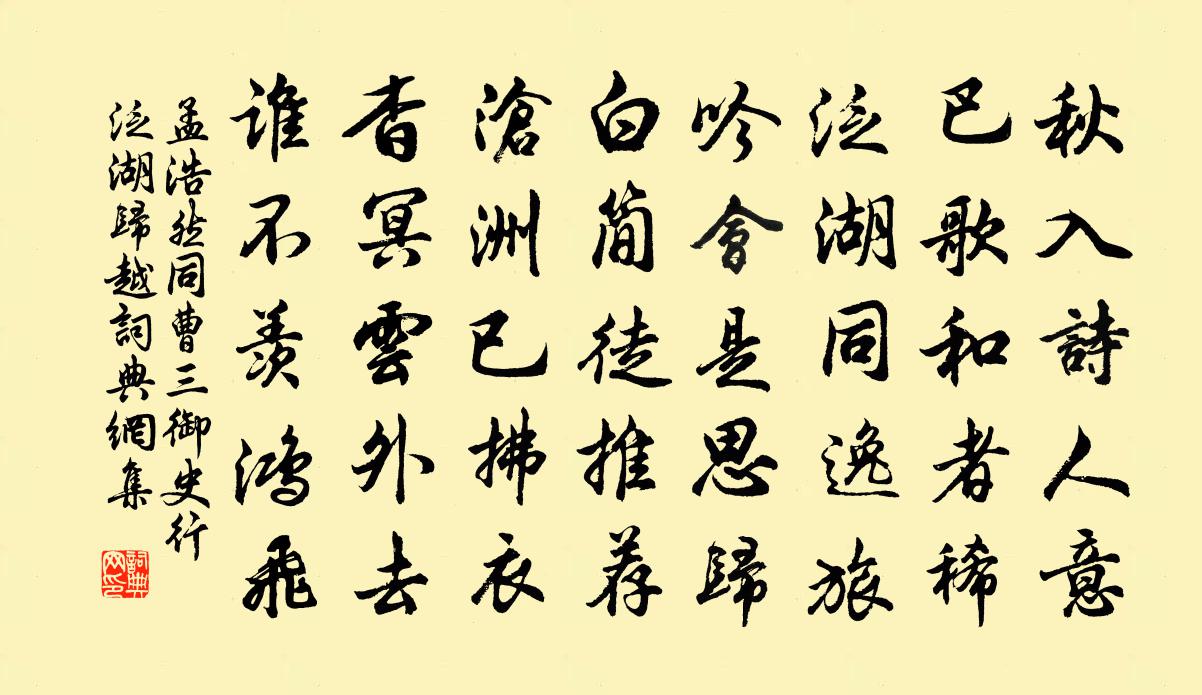 秋入詩人意
巳歌和者稀
泛湖同逸旅
吟會是思歸
白簡徒推荐
滄洲已拂衣
杳冥雲外去
誰不羨鴻飛
孟浩然同曹三御史行
泛湖歸越詞典網集
詞典网印